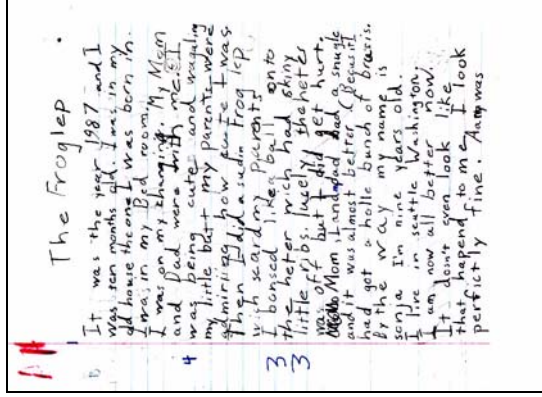 The Froglep
It was the year 1987 and I
was sen months old. I was in my
old house the one I was born in.
I was in my Bed room.
I was on my changing. My Mom
and Dad were with me. I
was being cute and wagaling
my little butt my parents were
admiring how cute I was.
Then I did a sudin frog lep
wich scard my parents
I bansed like a ball onto
the heter wich had skiny
little ribs. lucely the heter
was off but I did get hurt.
Mom, I and dad had a snugle
and it was almost better. (Becus it I
had got a holle bunch of bruxis.
By the way my name is
sonja I'm nine years old.
I live in seattle Washington.
I am now all better now.
It dosn't even look like
that hapend to me I look
perfictly fine.
4
3
3